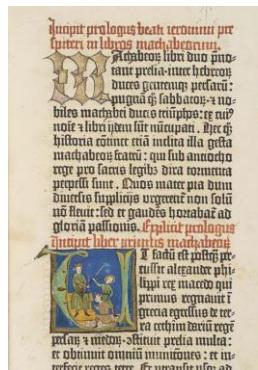 Incipit prologus beati ieronimi pre
spiteri in libros machabeorum.
Machabeorum libri duo prno-
tant prelia inter hebreorum
duces gentemque persarum:
pugnam quoque sabbatorum et no-
biles machabei ducis triumphos: ex cuius
nomine et libri ijdem sunt nuncupati. Hec quoque
historia continet etiam inclita illa gesta
machabeorum fratrum: qui sub antiocho
rege pro sacris legibus dira tormenta
perpessi sunt. Quos mater pia dum
diversis supplicijs urgerentur non solum
non flevit: sed et gaudens hortabatur ad
gloriam passionis. Explicit prologus
Incipit liber primus machabeorum
Et factum est postquam per-
cussit alexander phi-
lippi rex macedo qui
primus regnavit in
grecia egressus de ter-
ra cethim darium regem
persarum et medorum: constituit prelia multa:
et obtinuit omnium munitiones: et in-
terfecit reges terre. Et pertransiit usque ad